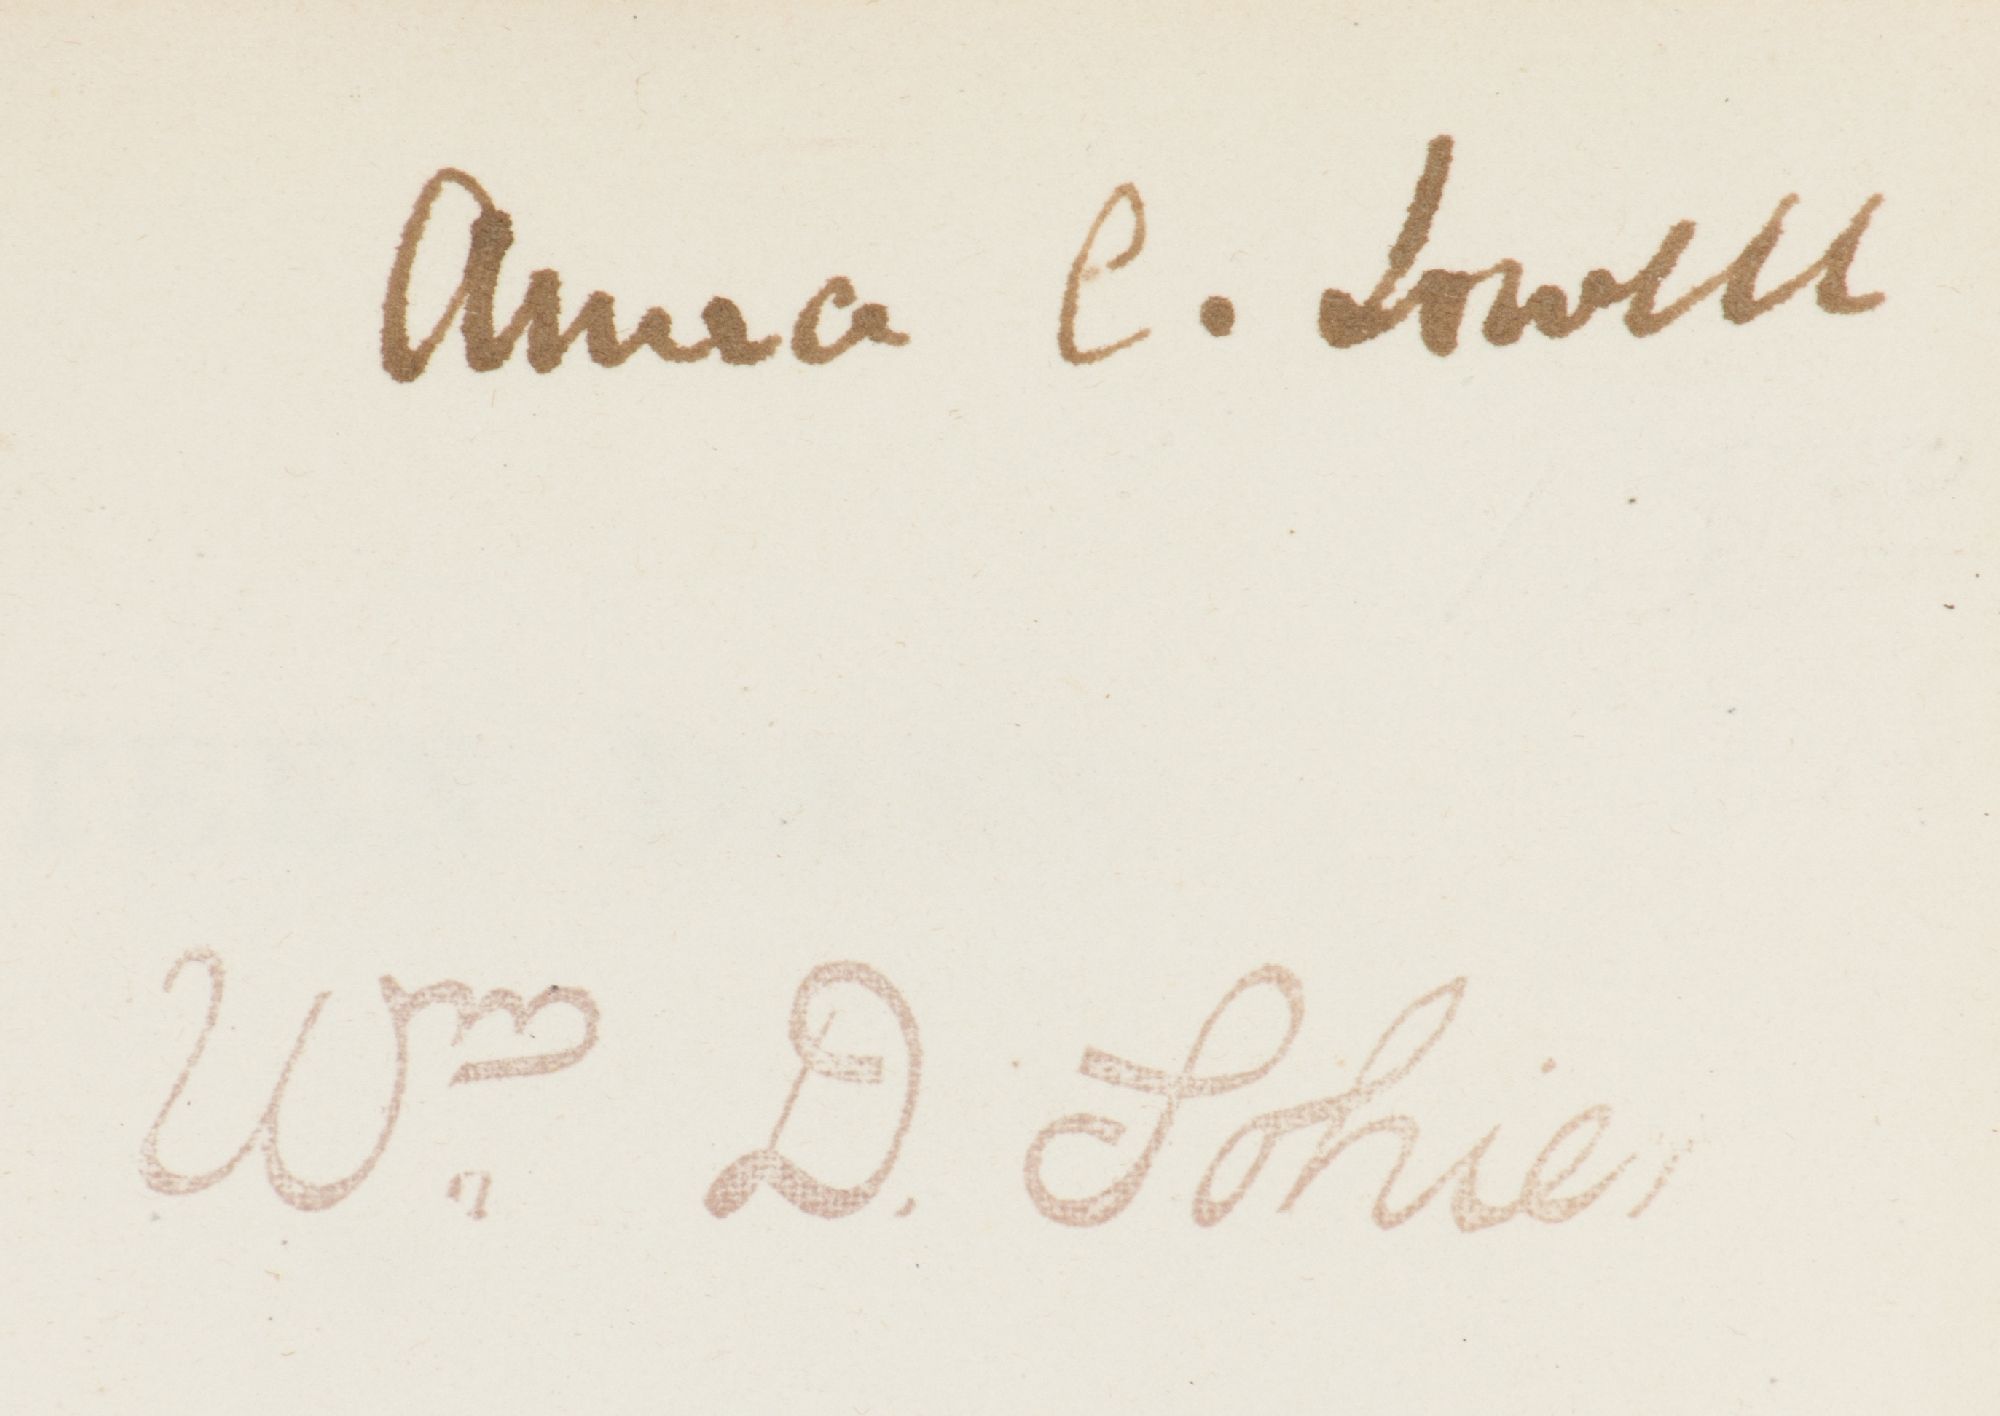 Anna C. Lowell
Wm. D. Sohier